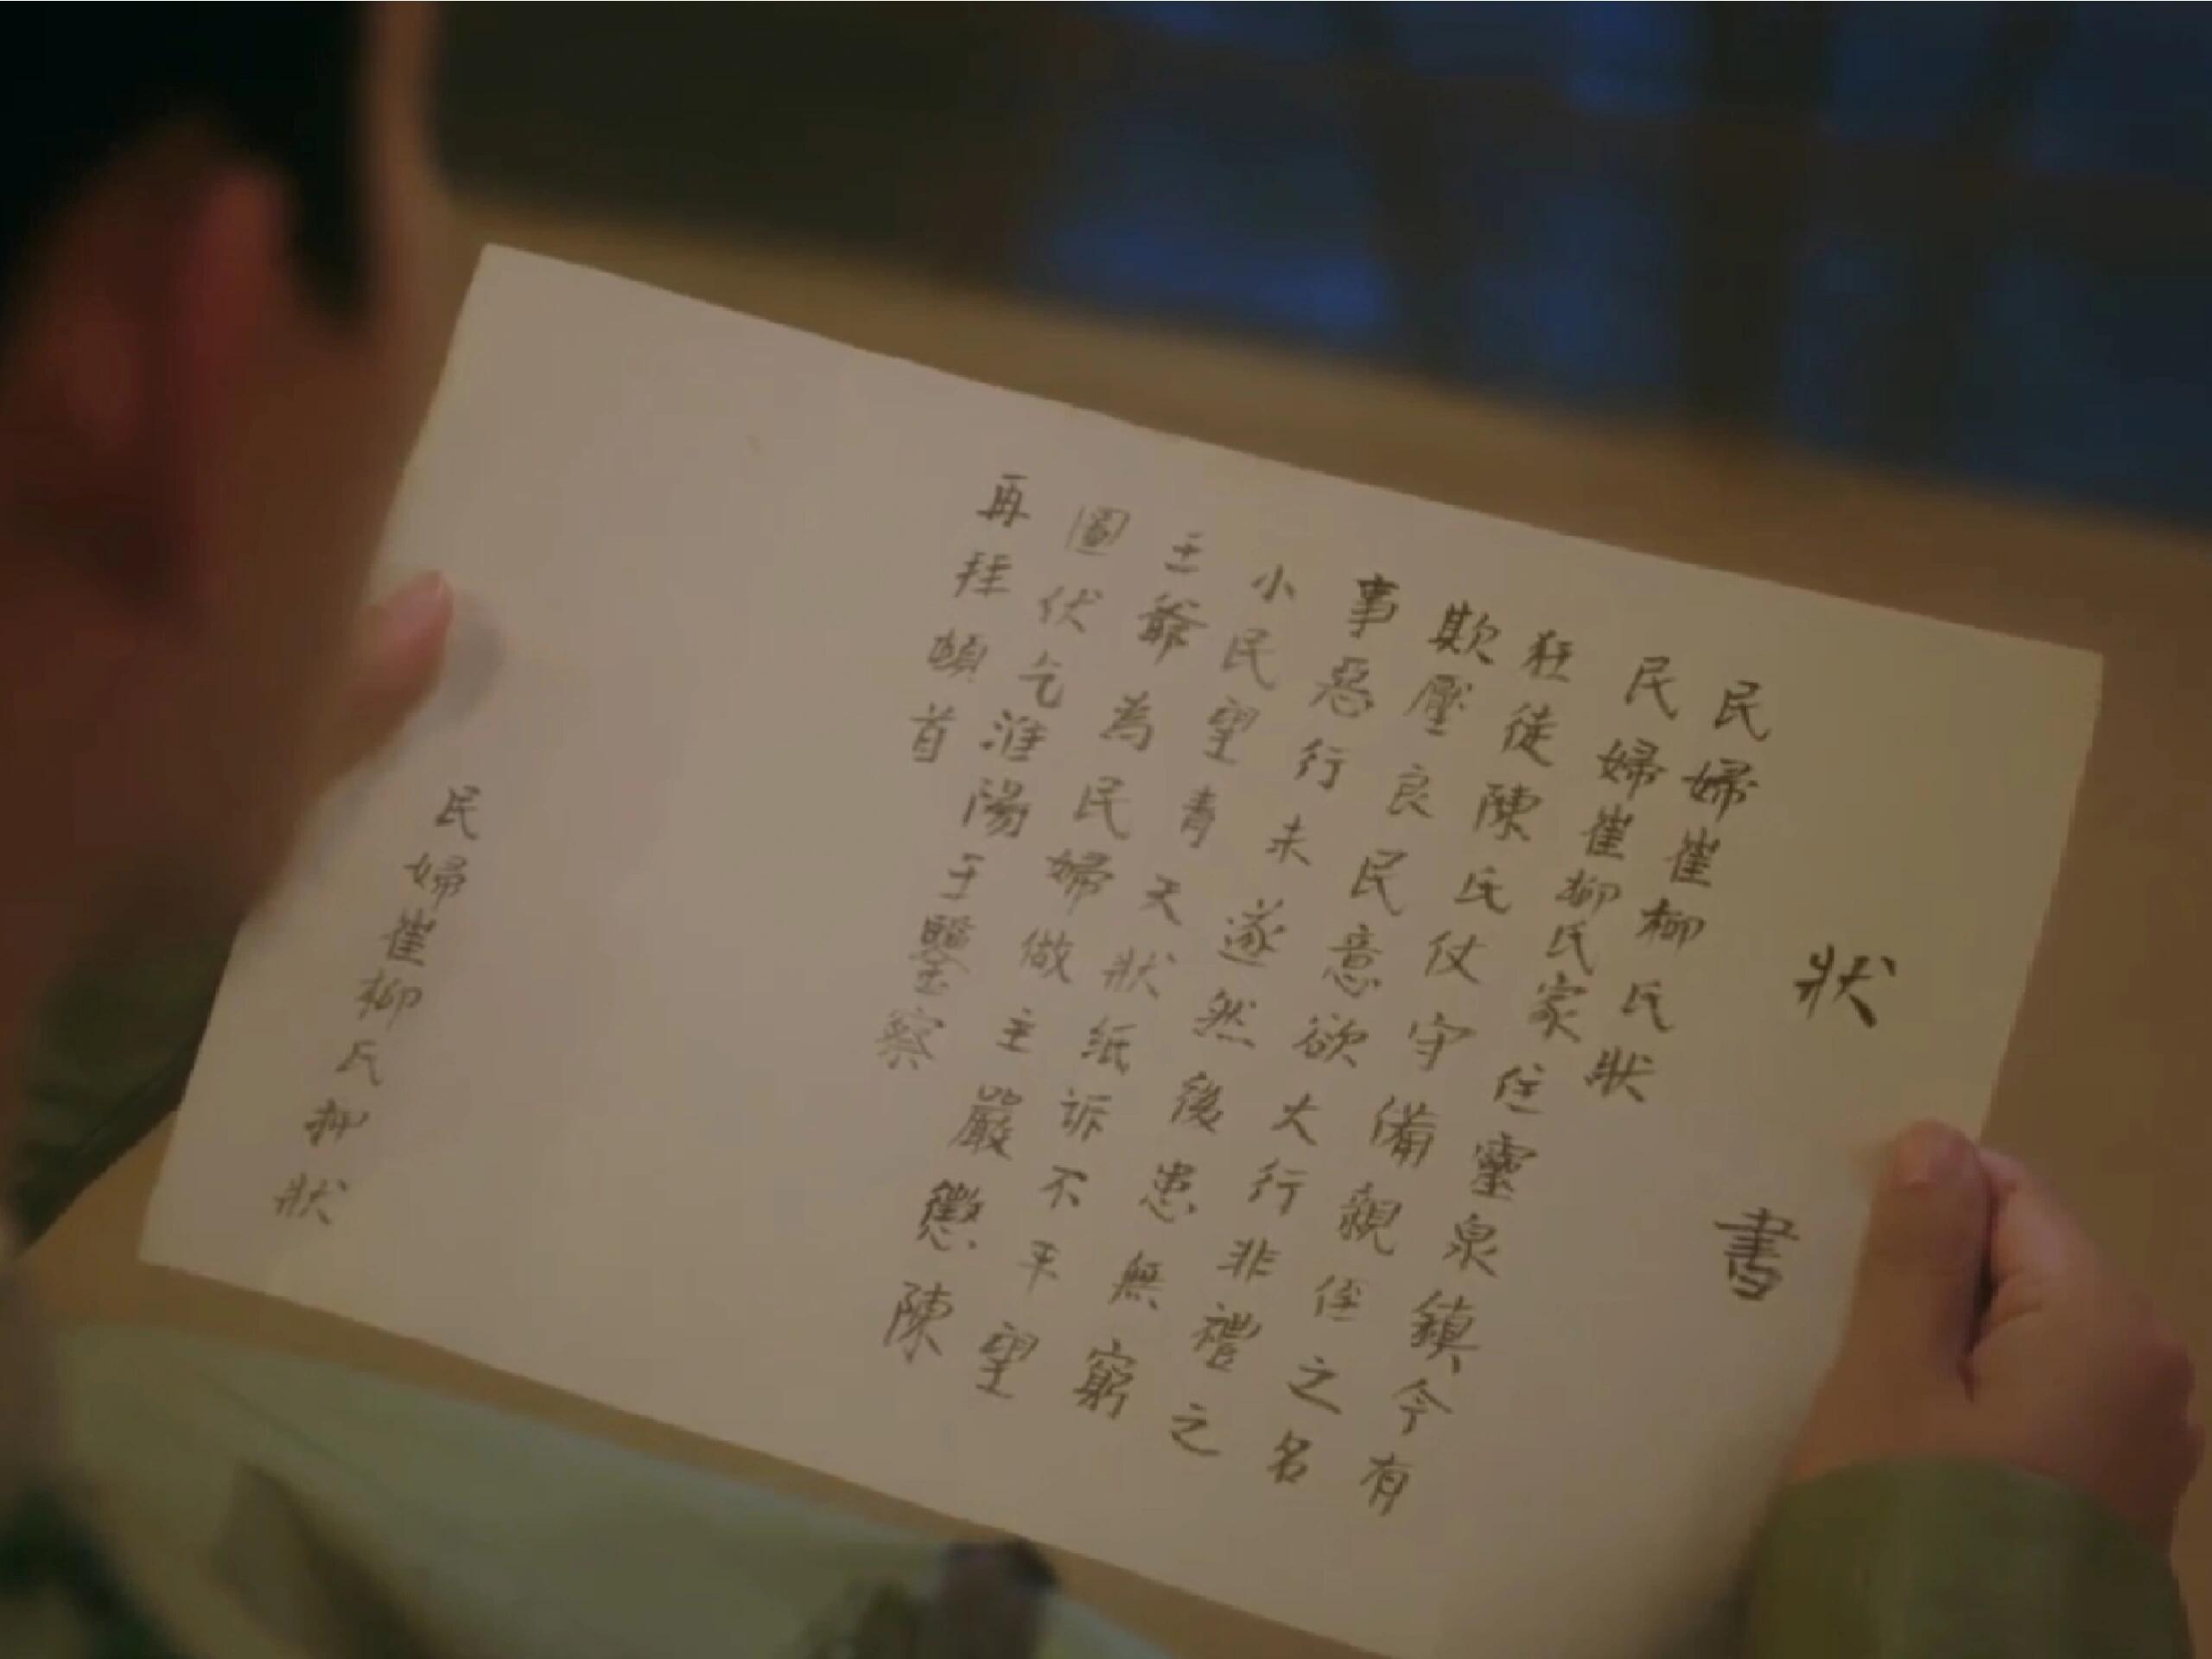 狀書
民婦崔柳氏狀
民婦崔柳氏家住靈泉鎮今有
狂徒陳氏仗守備親侄之名
欺壓良民意欲大行非禮之
事惡行未遂然後患無窮
小民望青天狀紙訴不平望
王爺為民婦做主嚴懲陳
圖伏乞淮陽王鑒察
再拜頓首
民婦崔柳氏叩狀